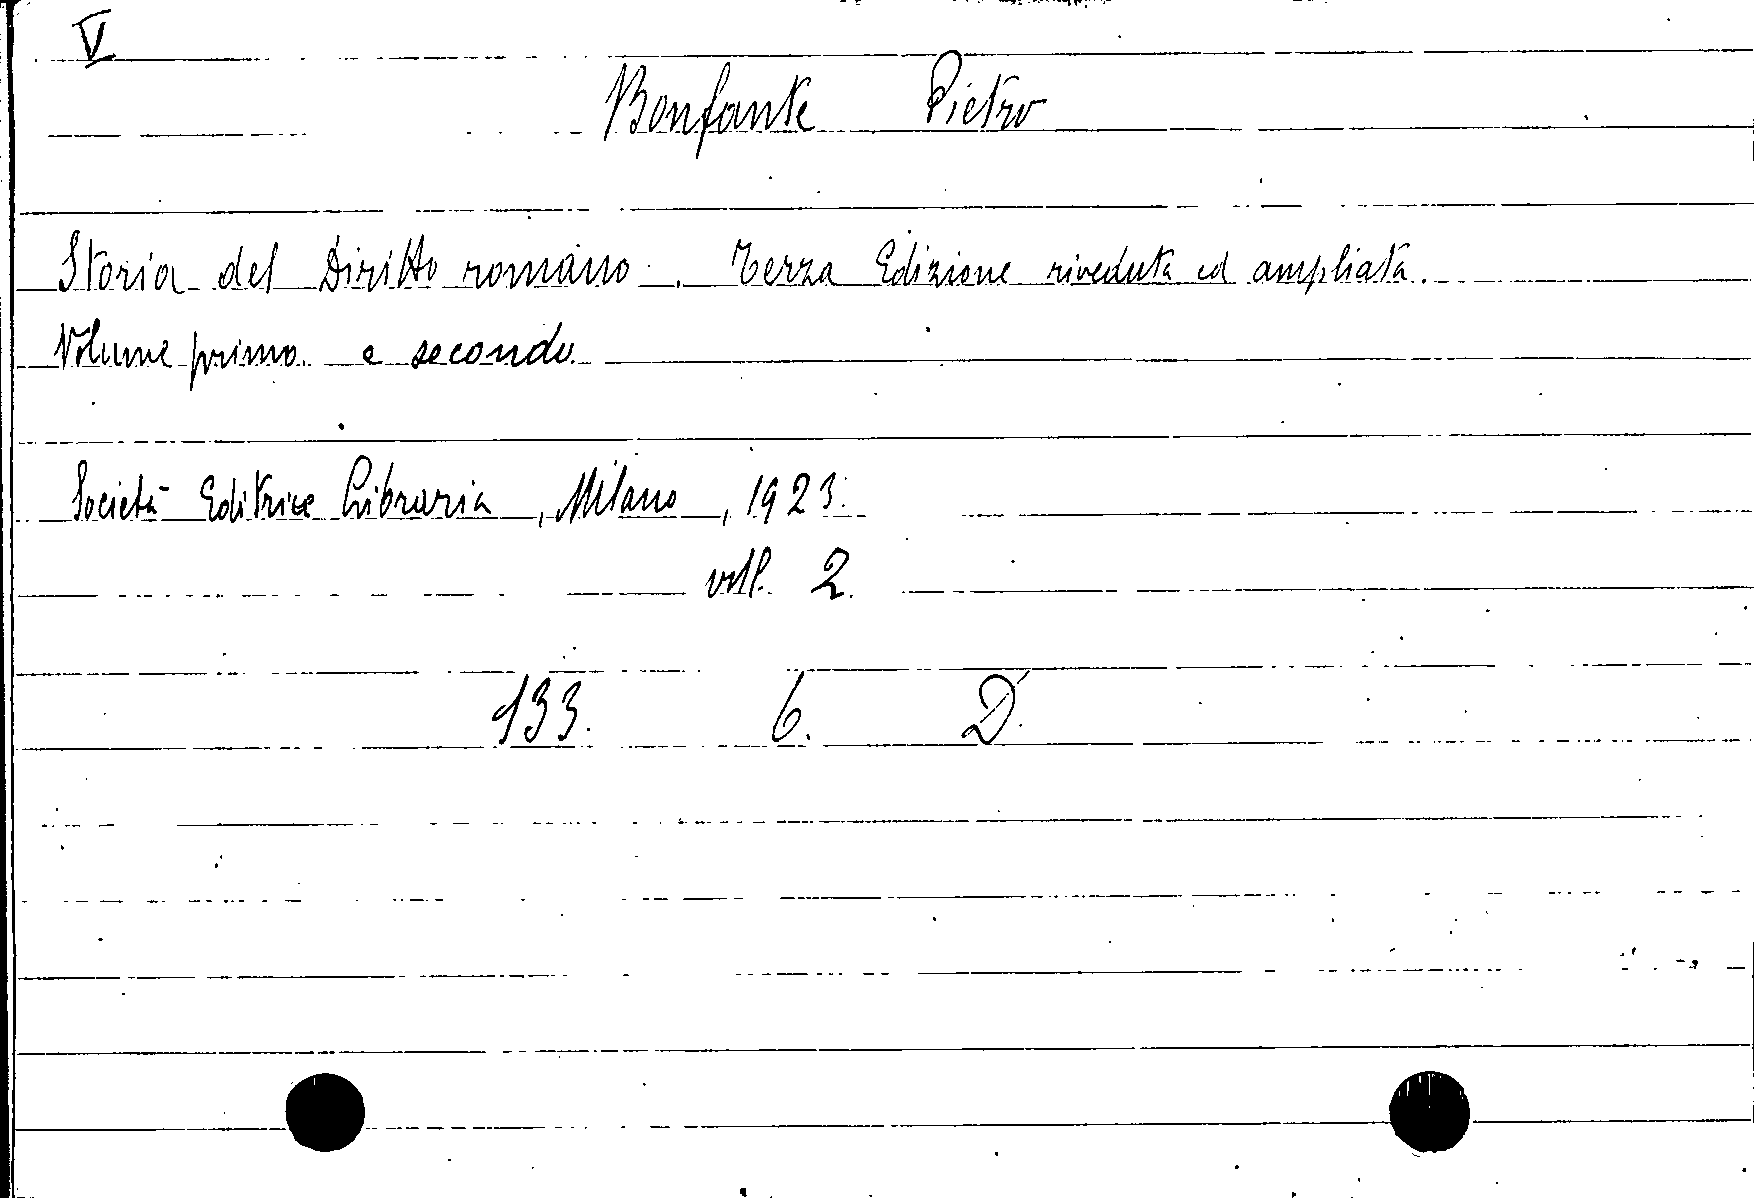 V
Bonfante Pietro
Storia del Diritto romano. Terza Edizione riveduta ed ampliata.
Volume primo e secondo
Società Editrice Libraria, Milano, 1923.
voll. 2.
133. 6. D.